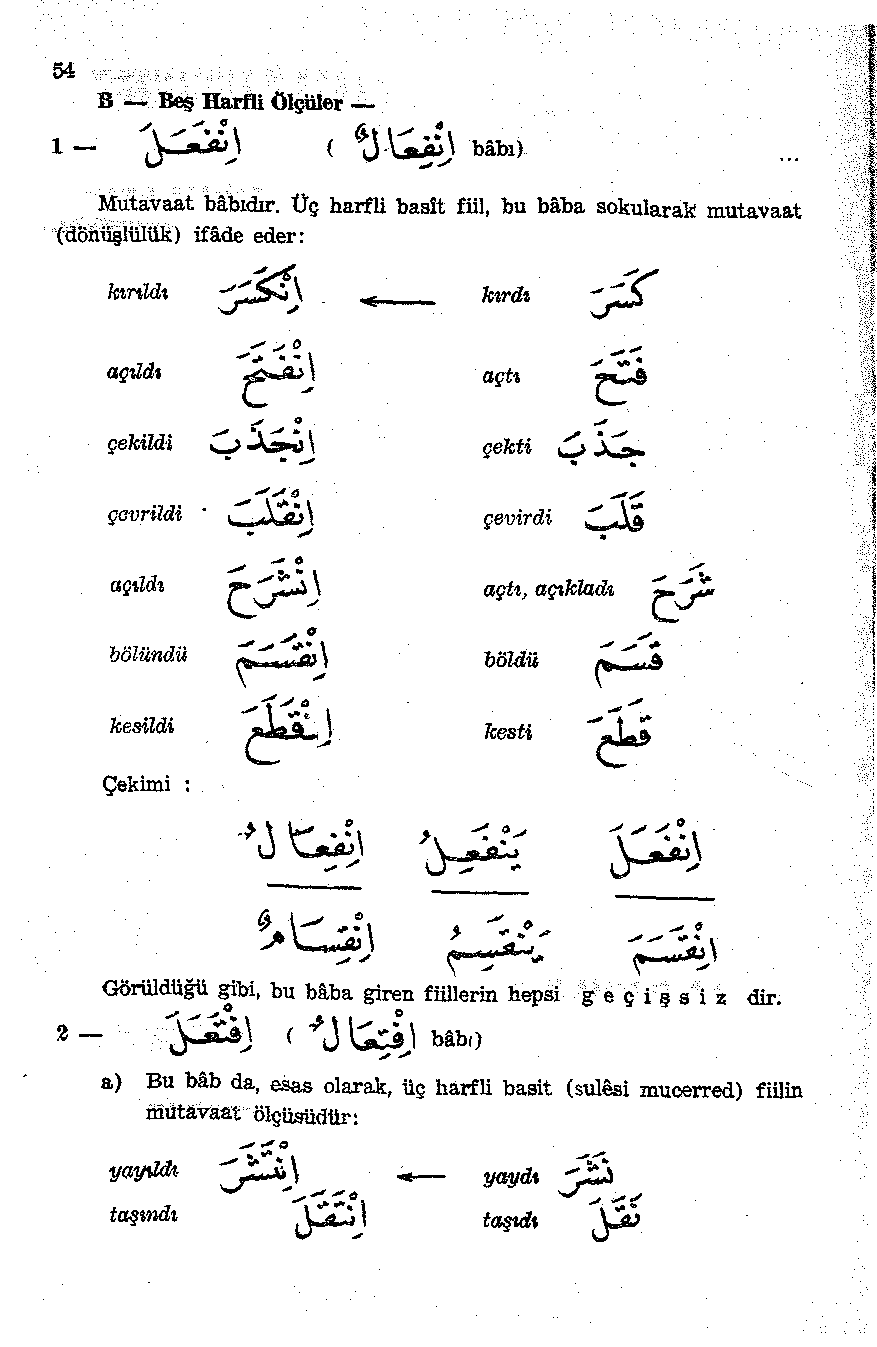 54
B — Beş Harfli Ölçüler —
1 — اِنْفَعَلَ ( اِنْفِعَالٌ bâbı) ...
Mutavaat bâbıdır. Üç harfli basît fiil, bu bâba sokularak mutavaat
(dönüşlülük) ifâde eder:
kırıldı اِنْكَسَرَ ← kırdı كَسَرَ
açıldı اِنْفَتَحَ açtı فَتَحَ
çekildi اِنْجَذَبَ çekti جَذَبَ
çevrildi اِنْقَلَبَ çevirdi قَلَبَ
açıldı اِنْشَرَحَ açtı, açıkladı شَرَحَ
bölündü اِنْقَسَمَ böldü قَسَمَ
kesildi اِنْقَطَعَ kesti قَطَعَ
Çekimi :
اِنْفَعَلَ يَنْفَعِلُ اِنْفِعَالٌ
اِنْقَسَمَ يَنْقَسِمُ اِنْقِسَامٌ
Görüldüğü gibi, bu bâba giren fiillerin hepsi g e ç i ş s i z dir.
2 — اِفْتَعَلَ ( اِفْتِعَالٌ bâbı)
a) Bu bâb da, esas olarak, üç harfli basit (sulêsi mucerred) fiilin
mutavaat ölçüsüdür:
yayıldı اِنْتَشَرَ ← yaydı نَشَرَ
taşındı اِنْتَقَلَ taşıdı نَقَلَ